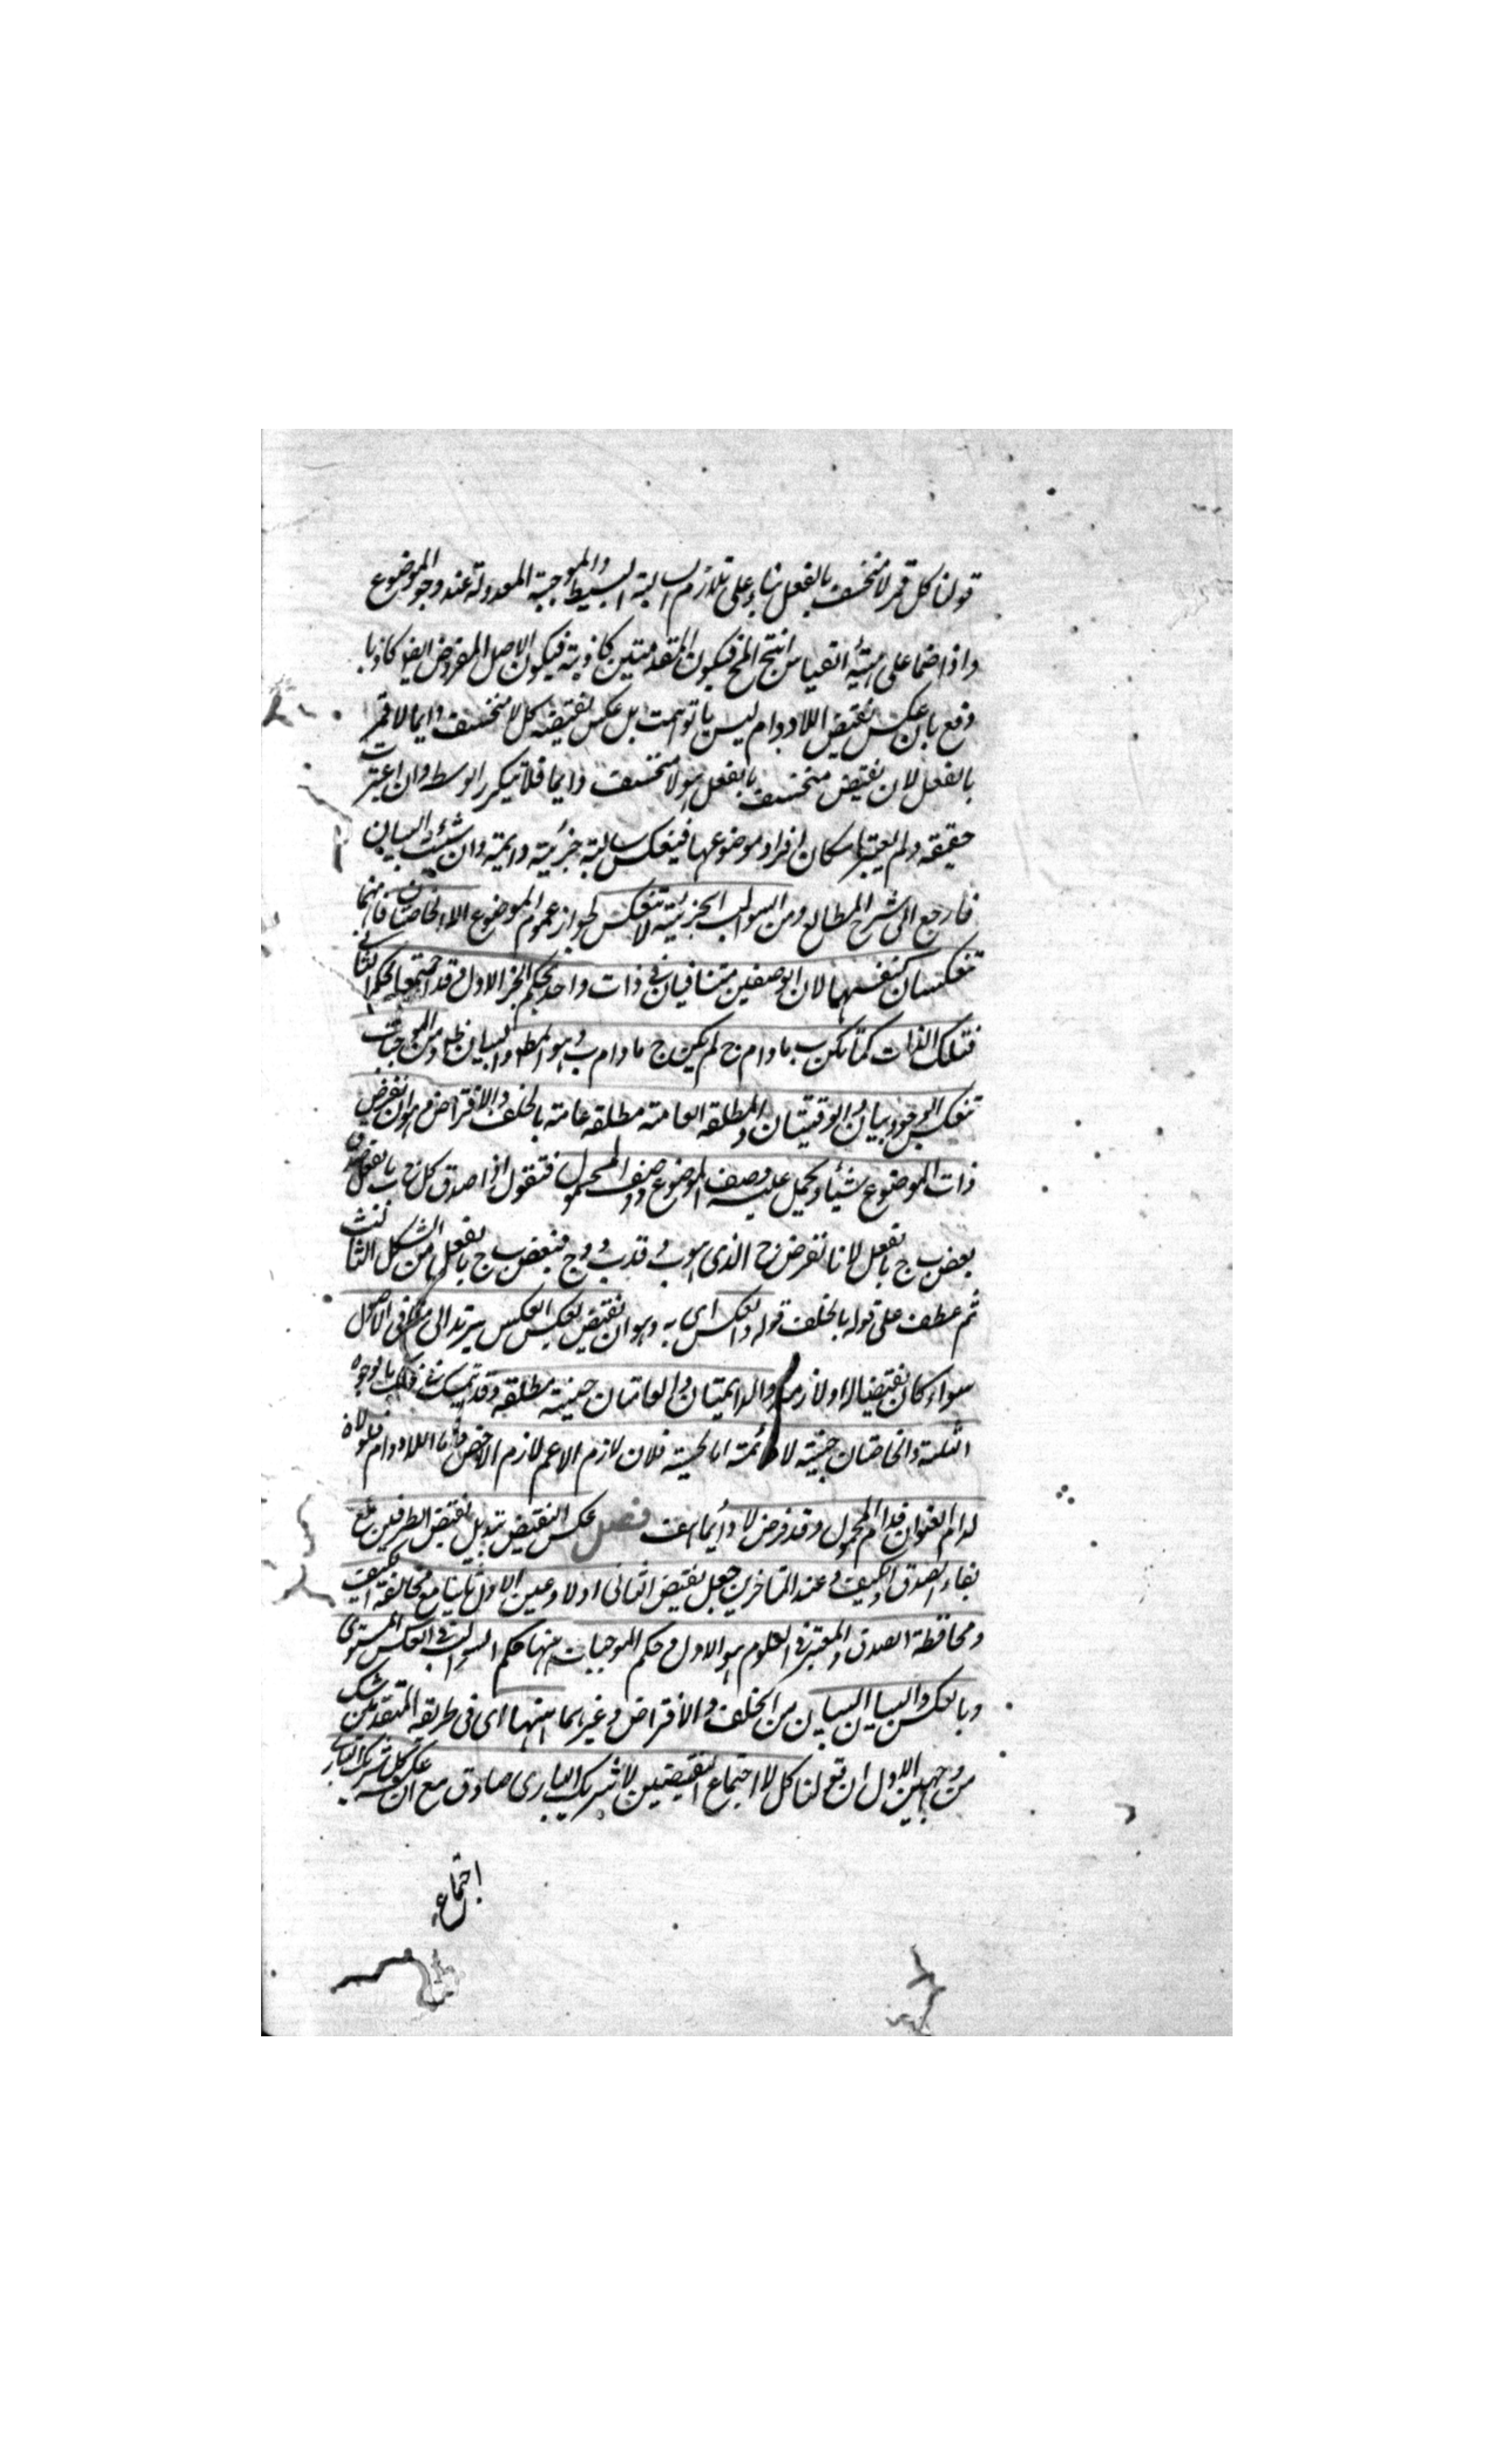 قولنا كل قمر لا منخسف بالفعل بناء على تلازم السالبة البسيطة والموجبة المعدولة عند وجود الموضوع
واذا ضما على هيئة القياس انتج المح فيكون المقدمتين كاذبة فيكون الاصل المفروض ايضا كاذبا
دفع بان عكس نقيض اللادوام ليس ما توهمت بل عكس نقيضه كل لا منخسف دايما لا قمر
بالفعل لان نقيض منخسف بالفعل هو لا منخسف دايما فلا يتكرر الوسط وان اعتبرت
حقيقة ولم يعتبر امكان افراد موضوعها فينعكس سالبة جزئية دايمة وان شئت البيان
فارجع الى شرح المطالع ومن السوالب الجزئية لا تنعكس لجواز عموم الموضوع الا الخاصتان فانهما
تنعكسان كنفسهما لان الوصفين متنافيان في ذات واحد بحكم الجزء الاول وقد اجتمعا بحكم الثاني
فتلك الذات كما لم يكن ب مادام ج لم يكن ج مادام ب وهو المط والبيان ظ ومن الموجبات
تنعكس الوجوديتان والوقتيتان والمطلقة العامة مطلقة عامة بالخلف والافتراض وهو ان نفرض
ذات الموضوع شيئا ويحمل عليه وصف الموضوع ووصف المحمول فنقول اذا صدق كل ج ب بالفعل صدق
بعض ب ج بالفعل لانا نفرض ج الذي هو ب د فد ب و د ج فبعض ب ج بالفعل من الشكل الثالث
ثم عطف على قوله بالخلف قوله والعكس اى به وهو ان نقيض العكس يعكس ليرتد الى منافى الاصل
سواء كان نقيضا له او لازمه والدايمتان والعامتان حينية مطلقة وقد تمسك في ذلك بالوجوه
الثلثة والخاصتان حينية لا دائمة اما الحينية فلان لازم الاعم لازم الاخص واما اللادوام فلولاه
لدام العنوان فدام المحمول وقد فرض لا دائما هف فصل عكس النقيض تبديل نقيض الطرفين مع
بقاء الصدق والكيف وعند المتاخرين جعل نقيض الثانى اولا وعين الاول ثانيا مع مخالفة الكيف
ومحافظة الصدق والمعتبر فى العلوم هو الاول وحكم الموجبات ههنا حكم السوالب فى العكس المستوى
وبالعكس والبيان البيان من الخلف والافتراض وغيرهما ههنا اى فى طريقة المتقدمين شك
من وجهين الاول ان قولنا كل لا اجتماع النقيضين لا شريك البارى صادق مع ان عكسه كل شريك البارى
اجتماع